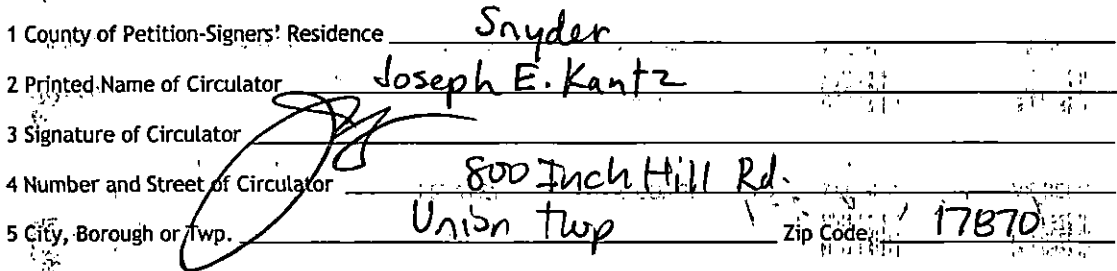 1 County of Petition-Signers' Residence Snyder
2 Printed Name of Circulator Joseph E. Kantz
3 Signature of Circulator
4 Number and Street of Circulator 800 Inch Hill Rd.
5 City, Borough or Twp. Union Twp Zip Code 17870